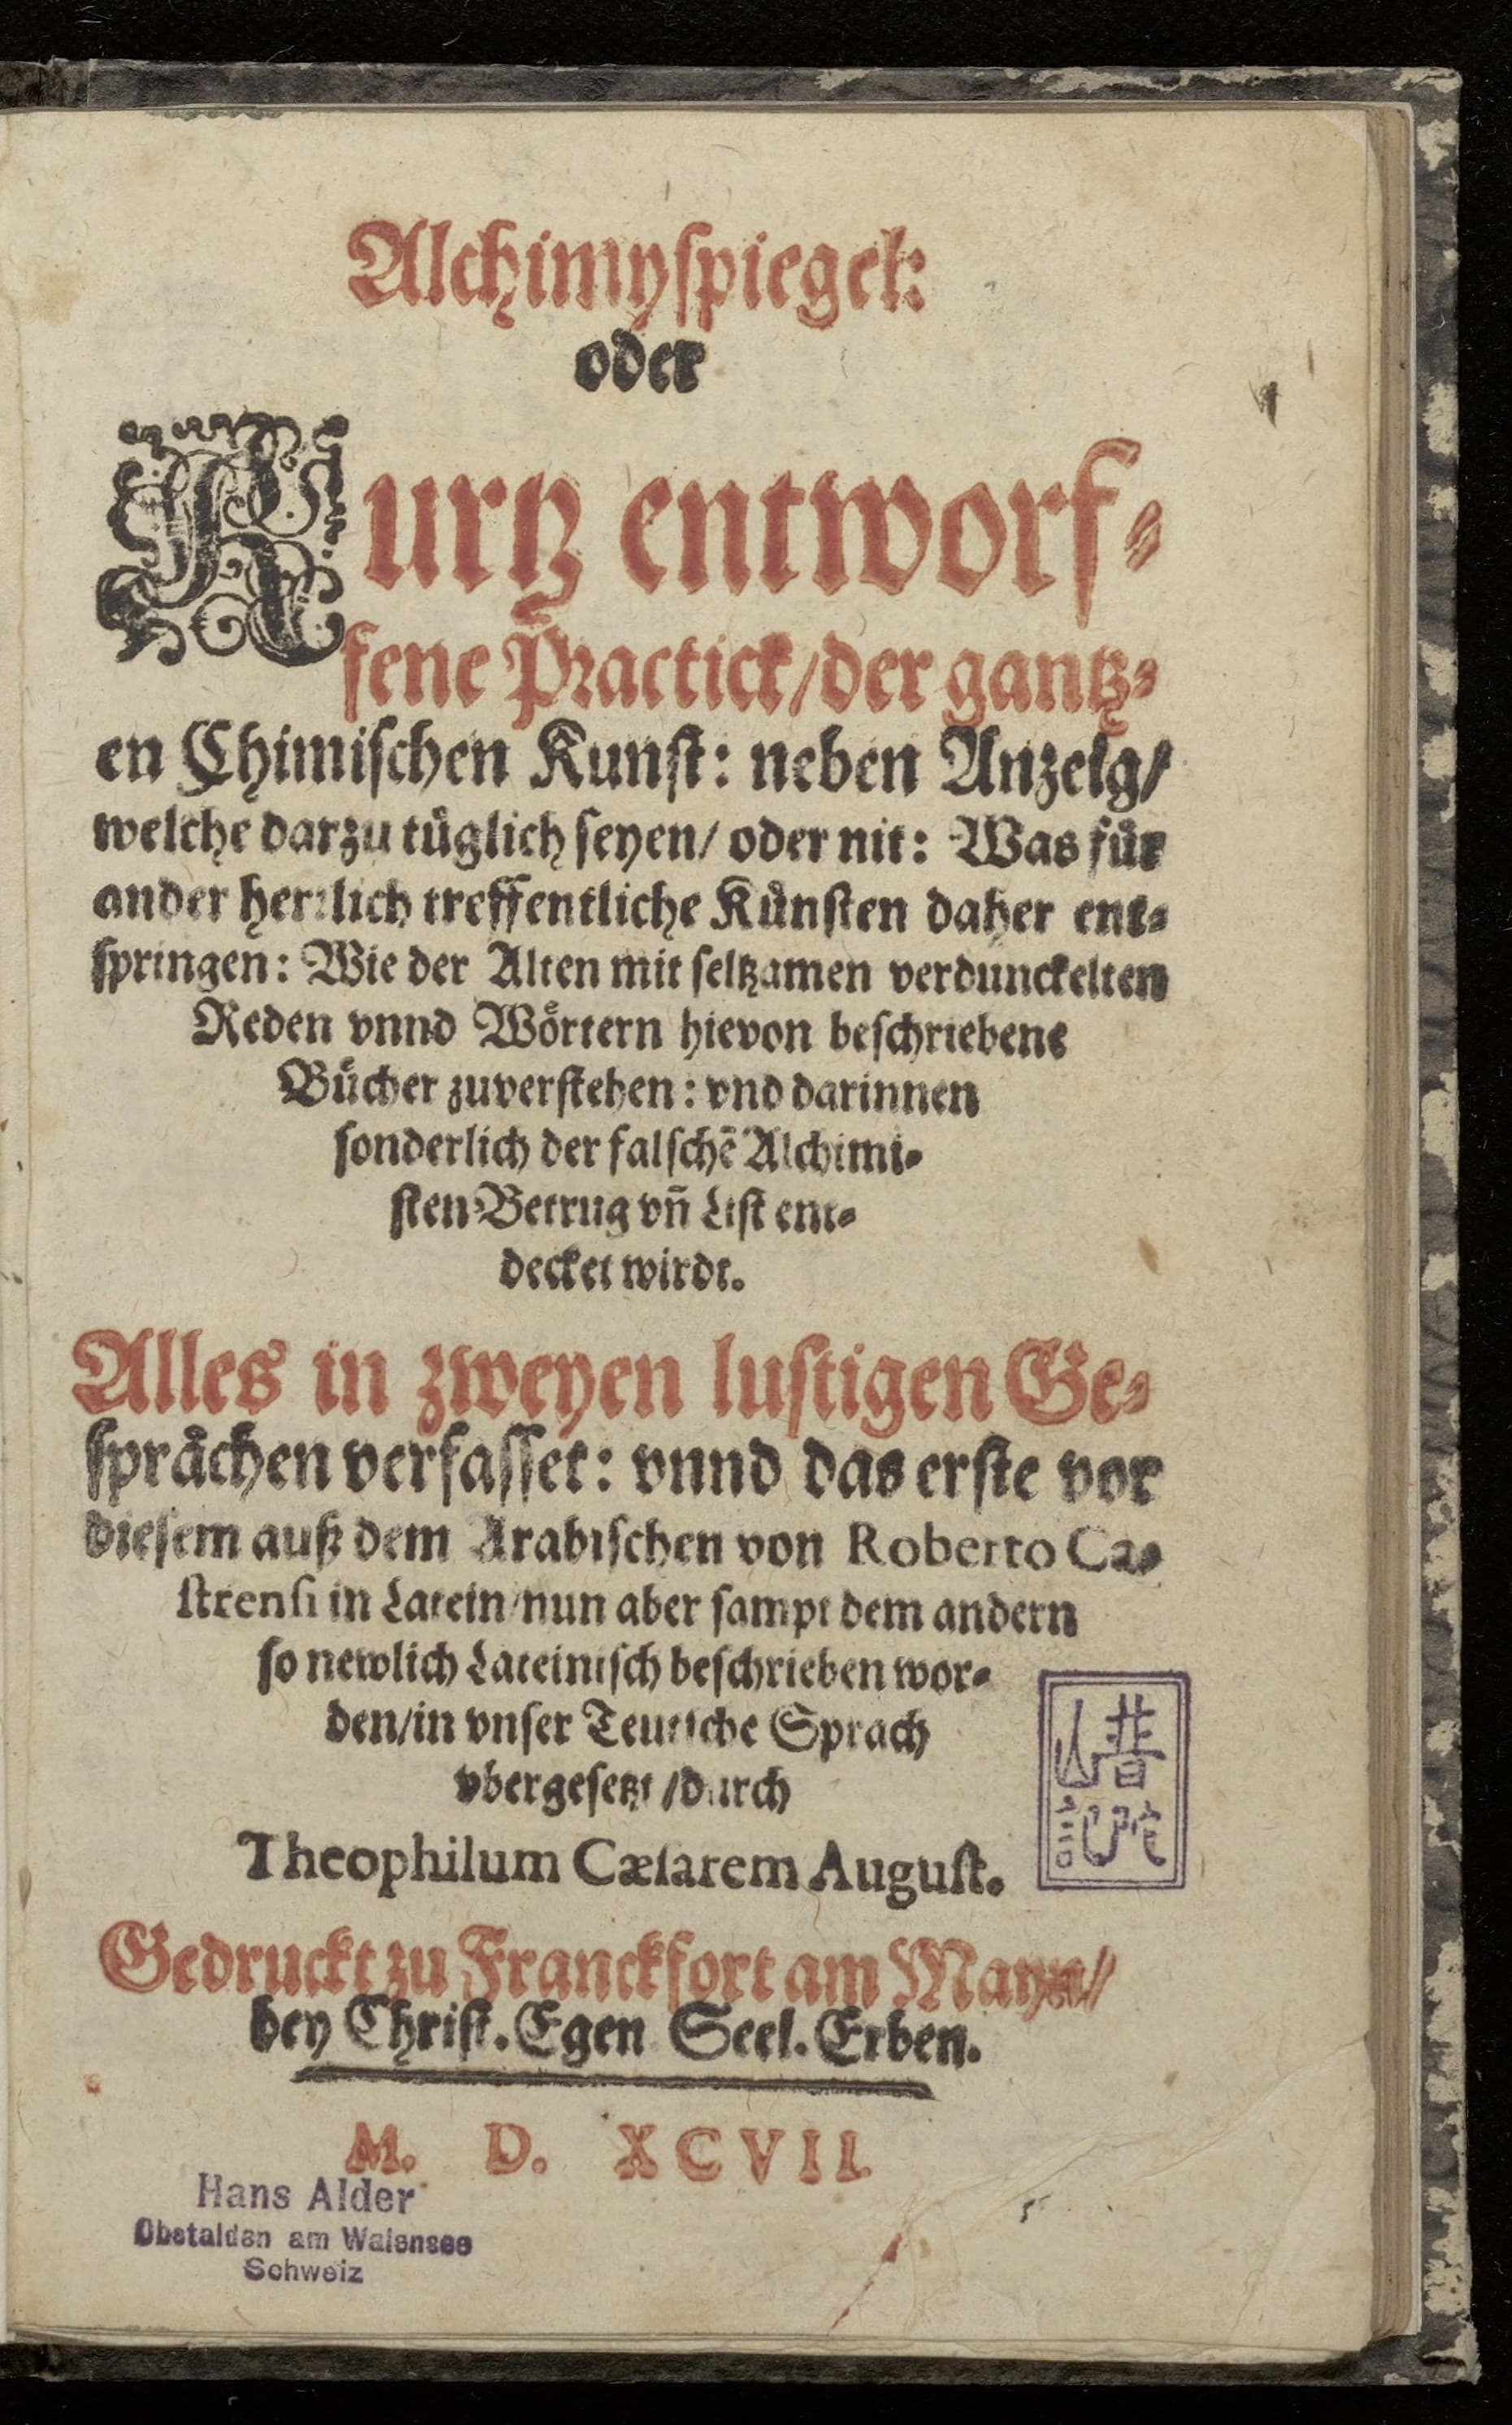 Alchimyspiegel:
oder
Kurtz entworf-
fene Practick/der gantz-
en Chimischen Kunst: neben Anzeig/
welche darzu tüglich seyen/ oder nit: Was für
ander herrlich treffentliche Künsten daher ent-
springen: Wie der Alten mit seltzamen verdunckelten
Reden vnnd Wörtern hievon beschriebene
Bücher zuverstehen: vnd darinnen
sonderlich der falschē Alchimi-
sten Betrug vñ List ent-
decket wirdt.
Alles in zweyen lustigen Ge-
sprächen verfasset: vnnd das erste vor
diesem auß dem Arabischen von Roberto Ca-
strensi in Latein/nun aber sampt dem andern
so newlich Lateinisch beschrieben wor-
den/in vnser Teutsche Sprach
vbergesetzt/durch
Theophilum Cæsarem August.
普陀
山記
Gedruckt zu Franckfort am Mayn/
bey Christ. Egen Seel. Erben.
M. D. XCVII.
Hans Alder
Obstalden am Walensee
Schweiz